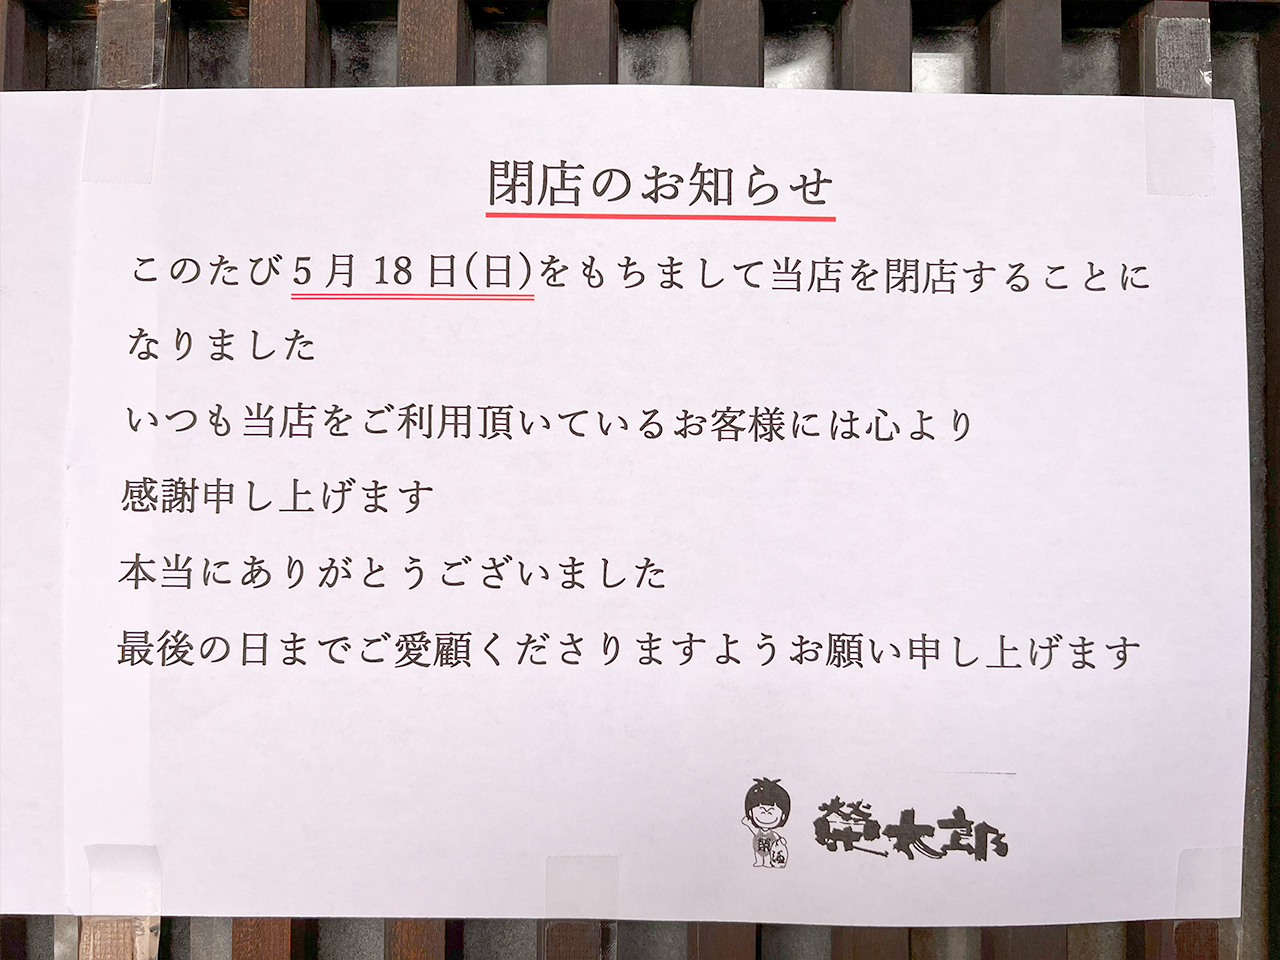 閉店のお知らせ
このたび5月18日(日)をもちまして当店を閉店することに
なりました
いつも当店をご利用頂いているお客様には心より
感謝申し上げます
本当にありがとうございました
最後の日までご愛顧くださりますようお願い申し上げます
榮太郎
榮
酒